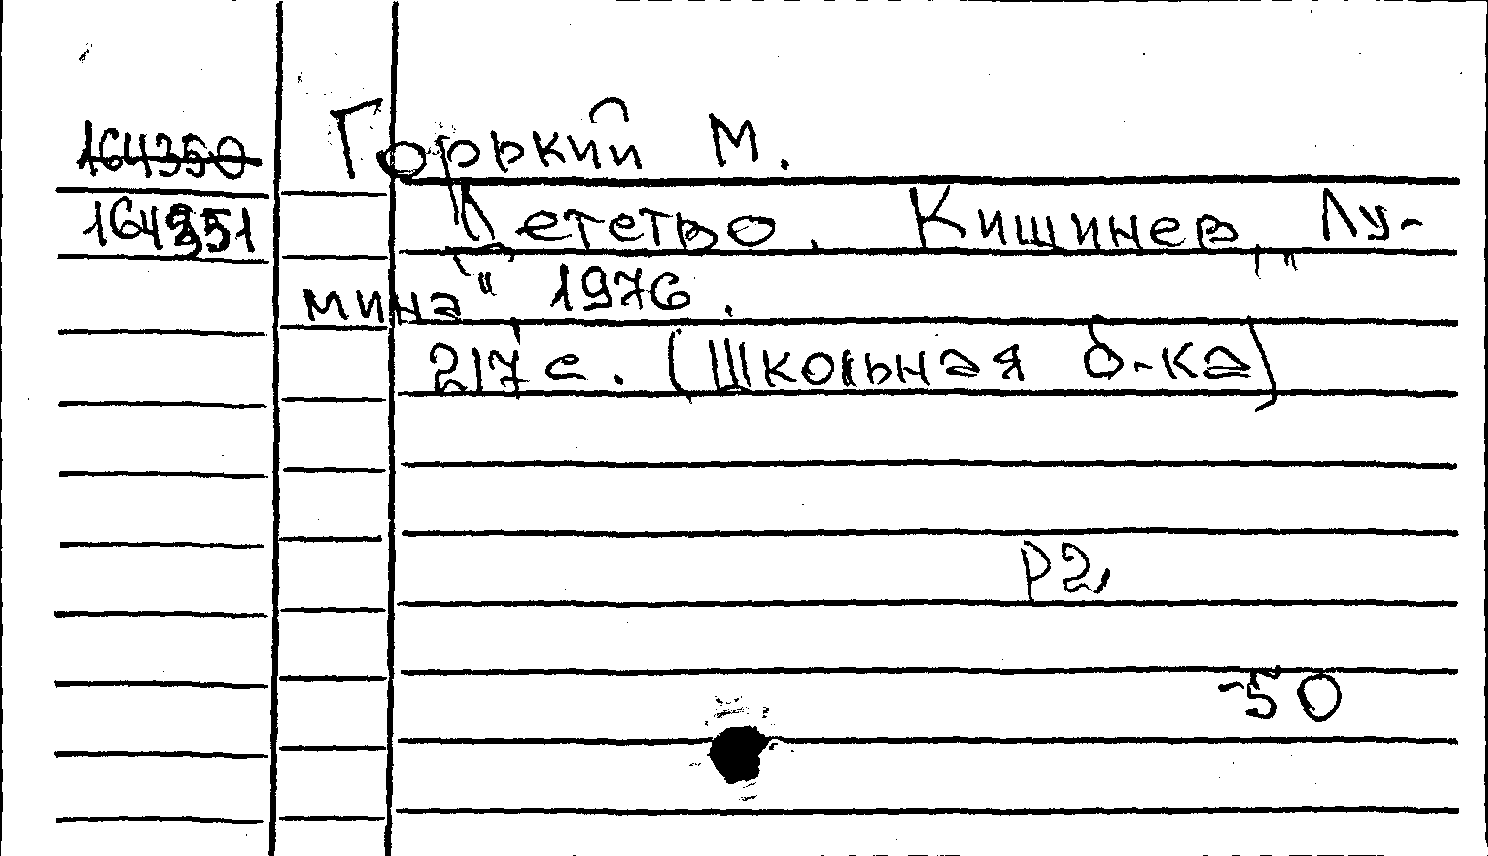 164350 Горький М.
164351 Детство. Кишинев, "Лу-
мина", 1976.
217 с. (Школьная б-ка)
Р2
-50